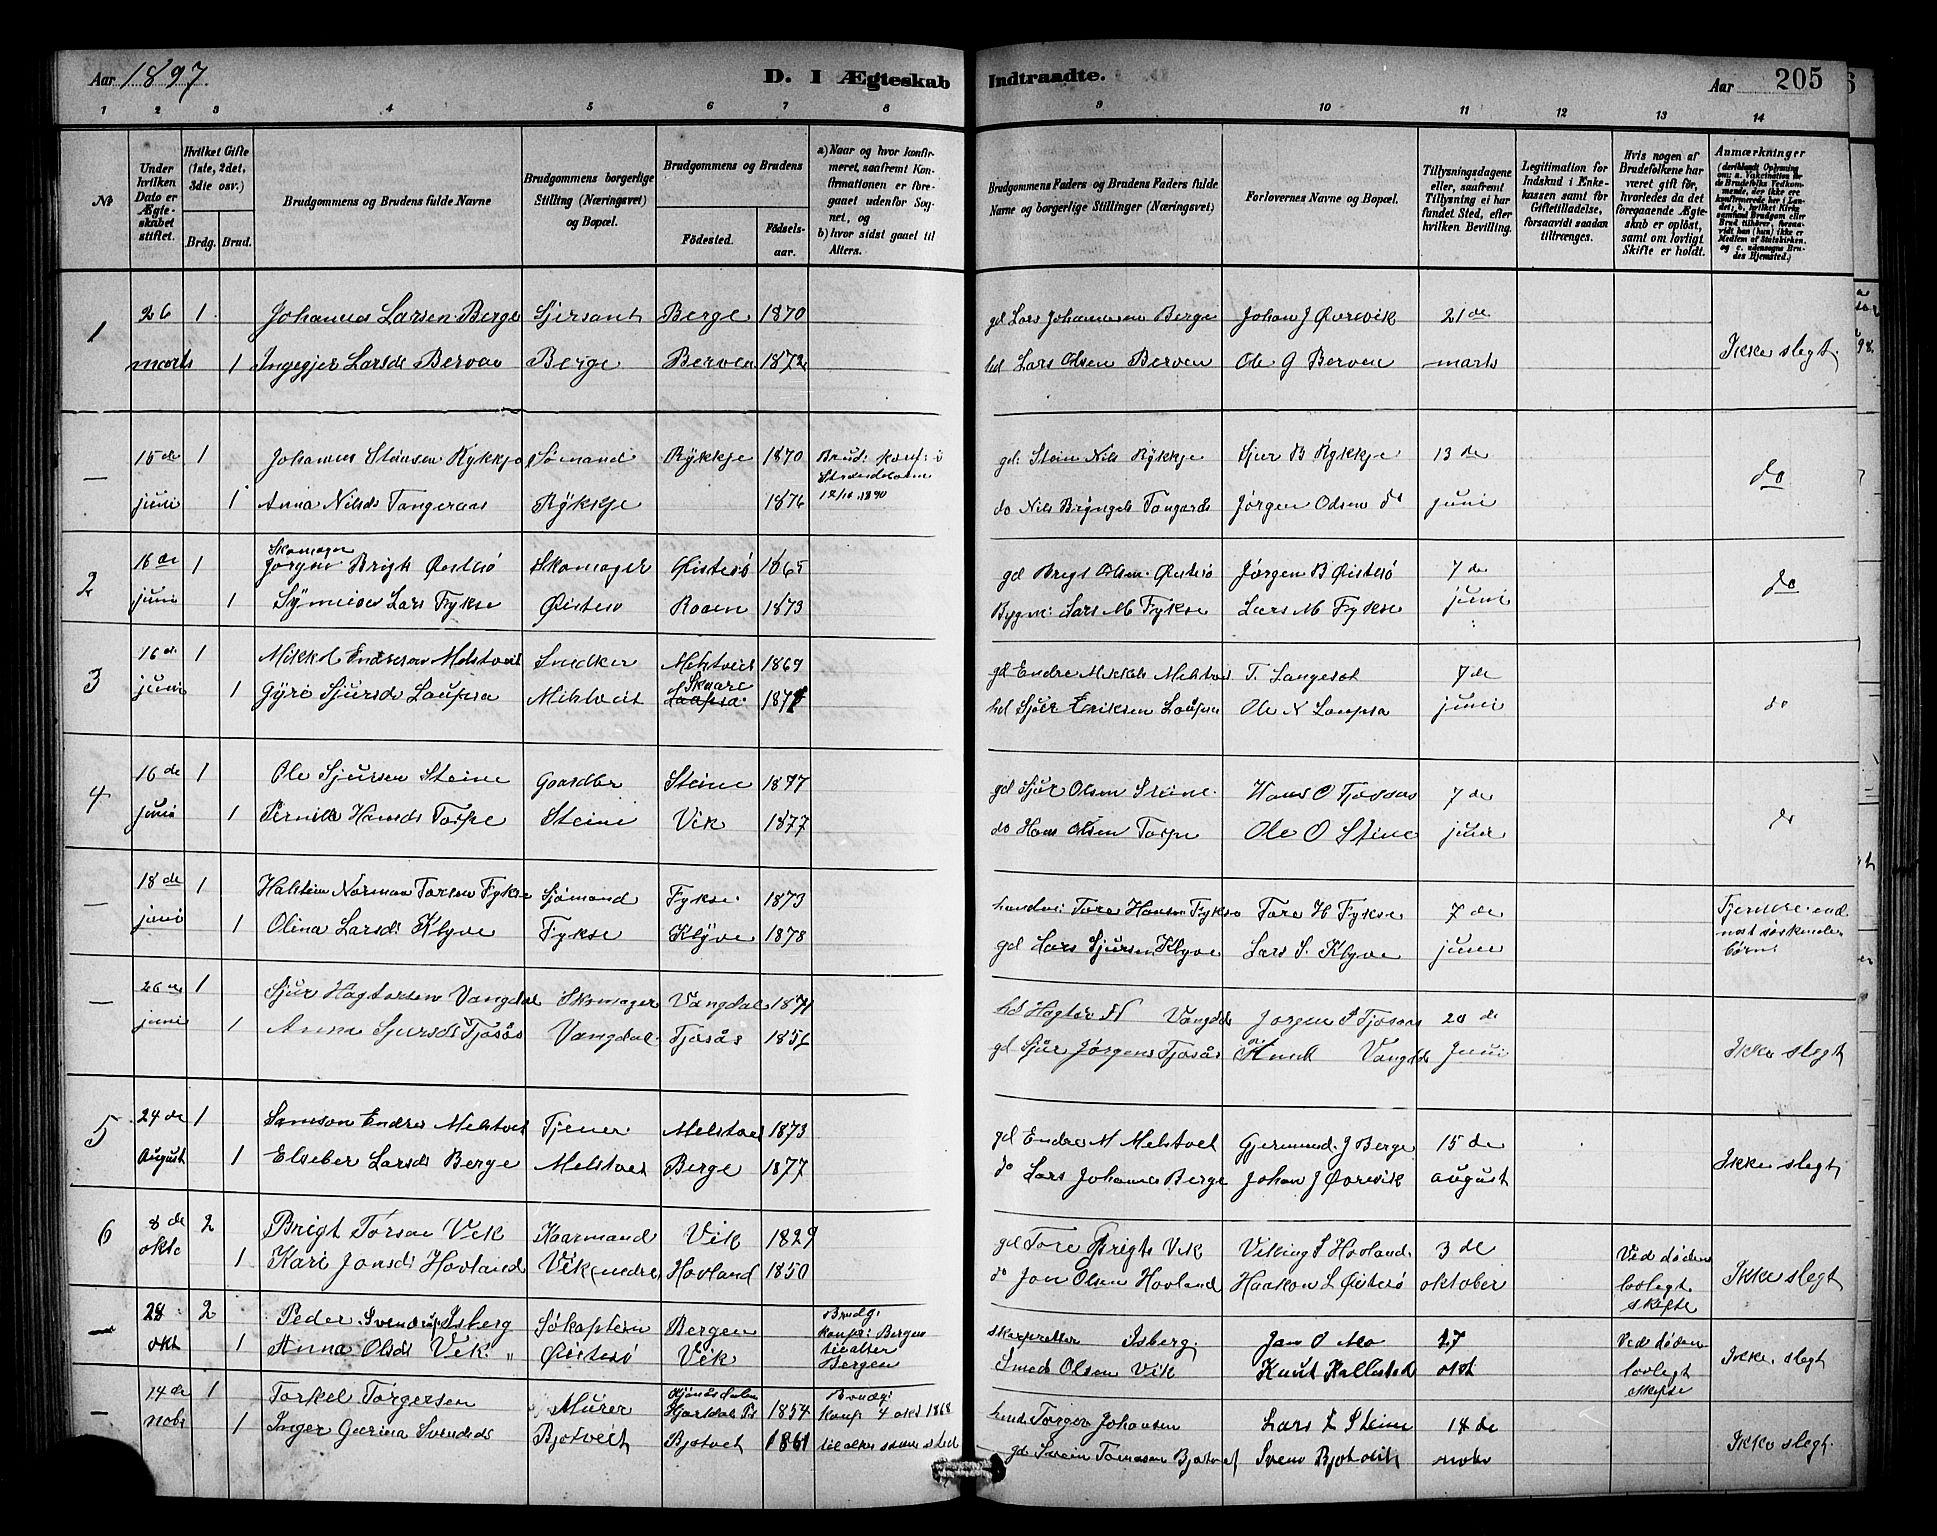 Aar 1897.
D. I Ægteskab Indtraadte.
Aar 205
1 2 3 4 5 6 7 8 9 10 11 12 13 14
No
Under hvilken Dato er Ægteskabet stiftet.
Hvilket Gifte (1ste, 2det, 3die osv.)
Brdg. Brud.
Brudgommens og Brudens fulde Navne
Brudgommens borgerlige Stilling (Næringsvei) og Bopæl.
Brudgommens og Brudens
Fødested. Fødselsaar.
a) Naar og hvor konfirmeret, saafremt Konfirmationen er foregaaet udenfor Sognet, og
b) hvor sidst gaaet til Alters.
Brudgommens Faders og Brudens Faders fulde Navne og borgerlige Stillinger (Næringsvei)
Forlovernes Navne og Bopæl.
Tillysningsdagene eller, saafremt Tillysning ei har fundet Sted, efter hvilken Bevilling.
Legitimation for Indskud i Enkekassen samt for Giftetilladelse, forsaavidt saadan tiltrænges.
Hvis nogen af Brudefolkene har været gift før, hvorledes da det foregaaende Ægteskab er opløst, samt om lovligt Skifte er holdt.
Anmærkninger
1 26 1 Johannes Larsen Berge Sjersant Berge 1870 gd Lars Johannesen Berge Johan J Øvrevik 21 de
marts 1 Ingegjer Larsds Berven Berge Berven 1872 hd Lars Olsen Berven Ole G Berven marts Ikke slegt.
— 15 de 1 Johannes Steinsen Rykkje Sømand Rykkje 1870 Brud: konf: i gd: Stein Nils Rykkje Sjur B Rykkje 13 de do
juni 1 Anna Nilsds Tangeraas Rykkje 1876 12/10 1890 do Nils Bryngels Tangerås Jørgen Odsen do juni
2 16 de 1 Skomager
Jørgen Brigt Østesø Skomager Østesø 1865 gd Brigt Olsen Østesø Jørgen B Østesø 7 de do
juni 1 Synneva Lars Fykse Østesø Roaen 1873 Bygm: Lars M Fykse Lars M Fykse juni
3 16 de 1 Mikkel Endresen Melstveit Snedker Melstveit 1867 gd Endre Mikkels Melstvei T. Langesæt 7 de
juni 1 Gyri Sjursds Laupsa Melstveit Skaare
Laupsa 1871 hd Sjur Eriksen Laupsa Ole N Laupsa juni do
4 16 de 1 Ole Sjursen Steine Gaardbr Steine 1877 gd Sjur Olsen Steine Hans O Tjosaas 7 de
juni 1 Pernille Hansds Torpe Steine Vik 1877 do Hans Olsen Torpe Ole O Stine juni do
— 18 de 1 Halstein Norman Torsen Fykse Sjømand Fykse 1873 handv: Tore Hansen Fykse Tore H Fykse 7 de
juni 1 Olina Larsds Klyve Fykse Klyve 1878 gd Lars Sjursen Klyve Lars S. Klyve juni
end nest søskendebørn
— 26 de 1 Sjur Hagtorsen Vangdal Skomager Vangdal 1871 hd Hagtor H Vangdal Jorgen S Tjosaas 20 de
juni 1 Anna Sjursds Tjosås Vangdal Tjosås 1856 gd Sjur Jørgens Tjosås Knud Vangdal Juni Ikke slegt
5 24 de 1 Samson Endres Melstvet Tjener Melstvet 1873 gd Endre M Melstvet Gjermund J Berge 15 de
August 1 Elseber Larsds Berge Melstvet Berge 1877 do Lars Johannes Berge Johan J Øvrevik august Ikke slegt
6 8 de 2 Brigt Torsen Vik Kaarmand Vik 1829 gd Tore Brigts Vik Vikling S Hovland 3 de Ved døden
okto 1 Kari Jonsds Hovland Vik nedre Hovland 1850 do Jon Olsen Hovland Haakon L Østesø oktober lovlegt skifte Ikke slegt
— 28 2 Peder Svendsen Isberg Søkaptein Bergen Brudg: konf: Bergen skarpretter Isberg Jan O Mo 27 Ved døden
okt 1 Anna Olsds Vik Østesø Vik tilalter Bergen Smed Olsen Vik Knut Kallested okt lovlegt skifte Ikke slegt
— 14 de 1 Torkel Torgersen Murer Hjartdal 1854 Brudg: konf 4 okt 1868 Torger Johansen Lars L Steine 14 de
nobr 1 Inger Gurina Svendsds Bjotveit Bjotvet 1861 tilalter samme sted gd Svein Tomasen Bjotvet Svein Bjotveit nobr Ikke slegt.